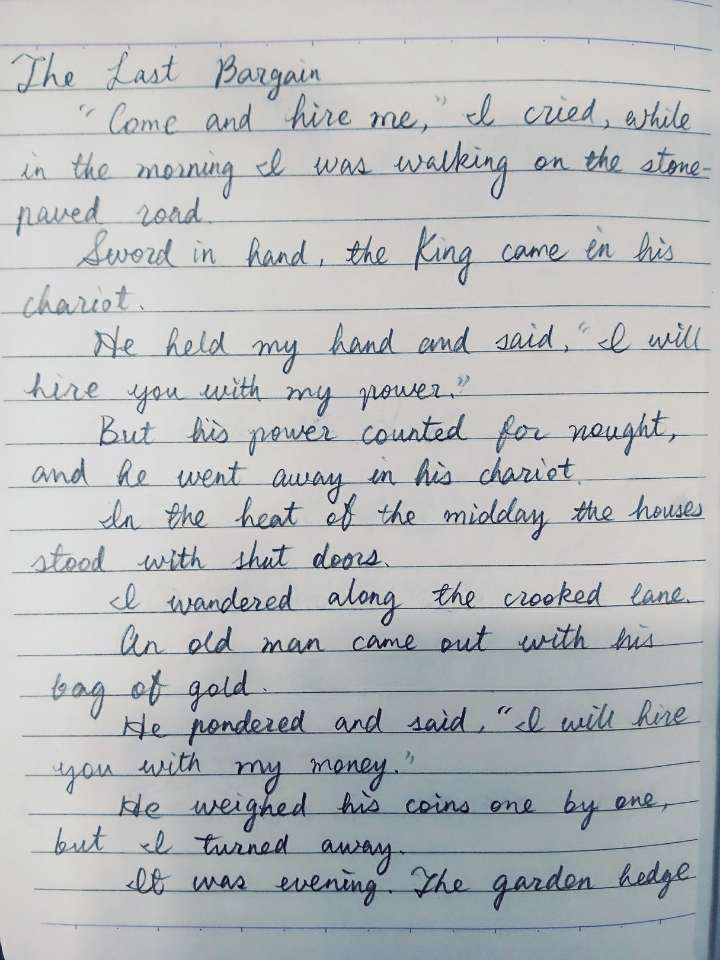 The Last Bargain
"Come and hire me," I cried, while
in the morning I was walking on the stone-
paved road.
Sword in hand, the King came in his
chariot.
He held my hand and said, "I will
hire you with my power."
But his power counted for nought,
and he went away in his chariot.
In the heat of the midday the houses
stood with shut doors.
I wandered along the crooked lane.
An old man came out with his
bag of gold.
He pondered and said, "I will hire
you with my money."
He weighed his coins one by one,
but I turned away.
It was evening. The garden hedge